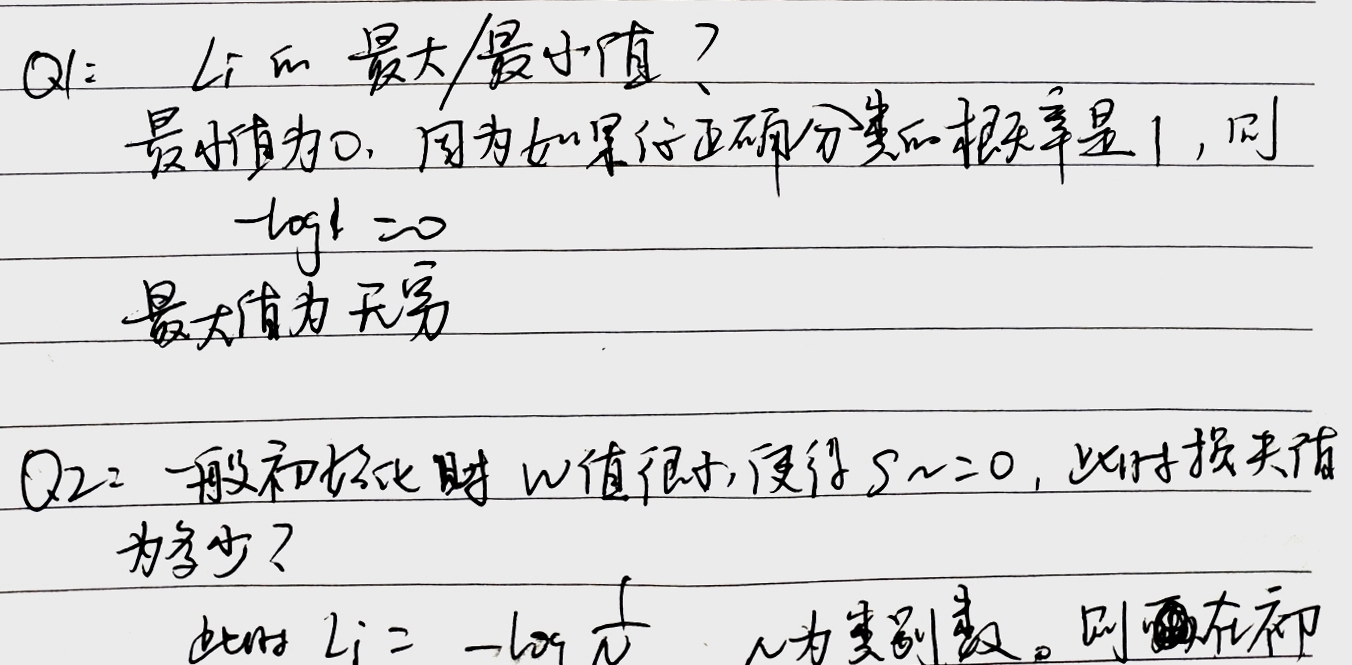 Q1: Li的 最大/最小值?
最小值为0. 因为如果你正确分类的概率是1, 则
-log1 =0
最大值为 无穷
Q2: 一般初始化时 W值很小, 使得 S~=0, 此时损失值
为多少?
此时 Li = -log 1/N N为类别数。则在初